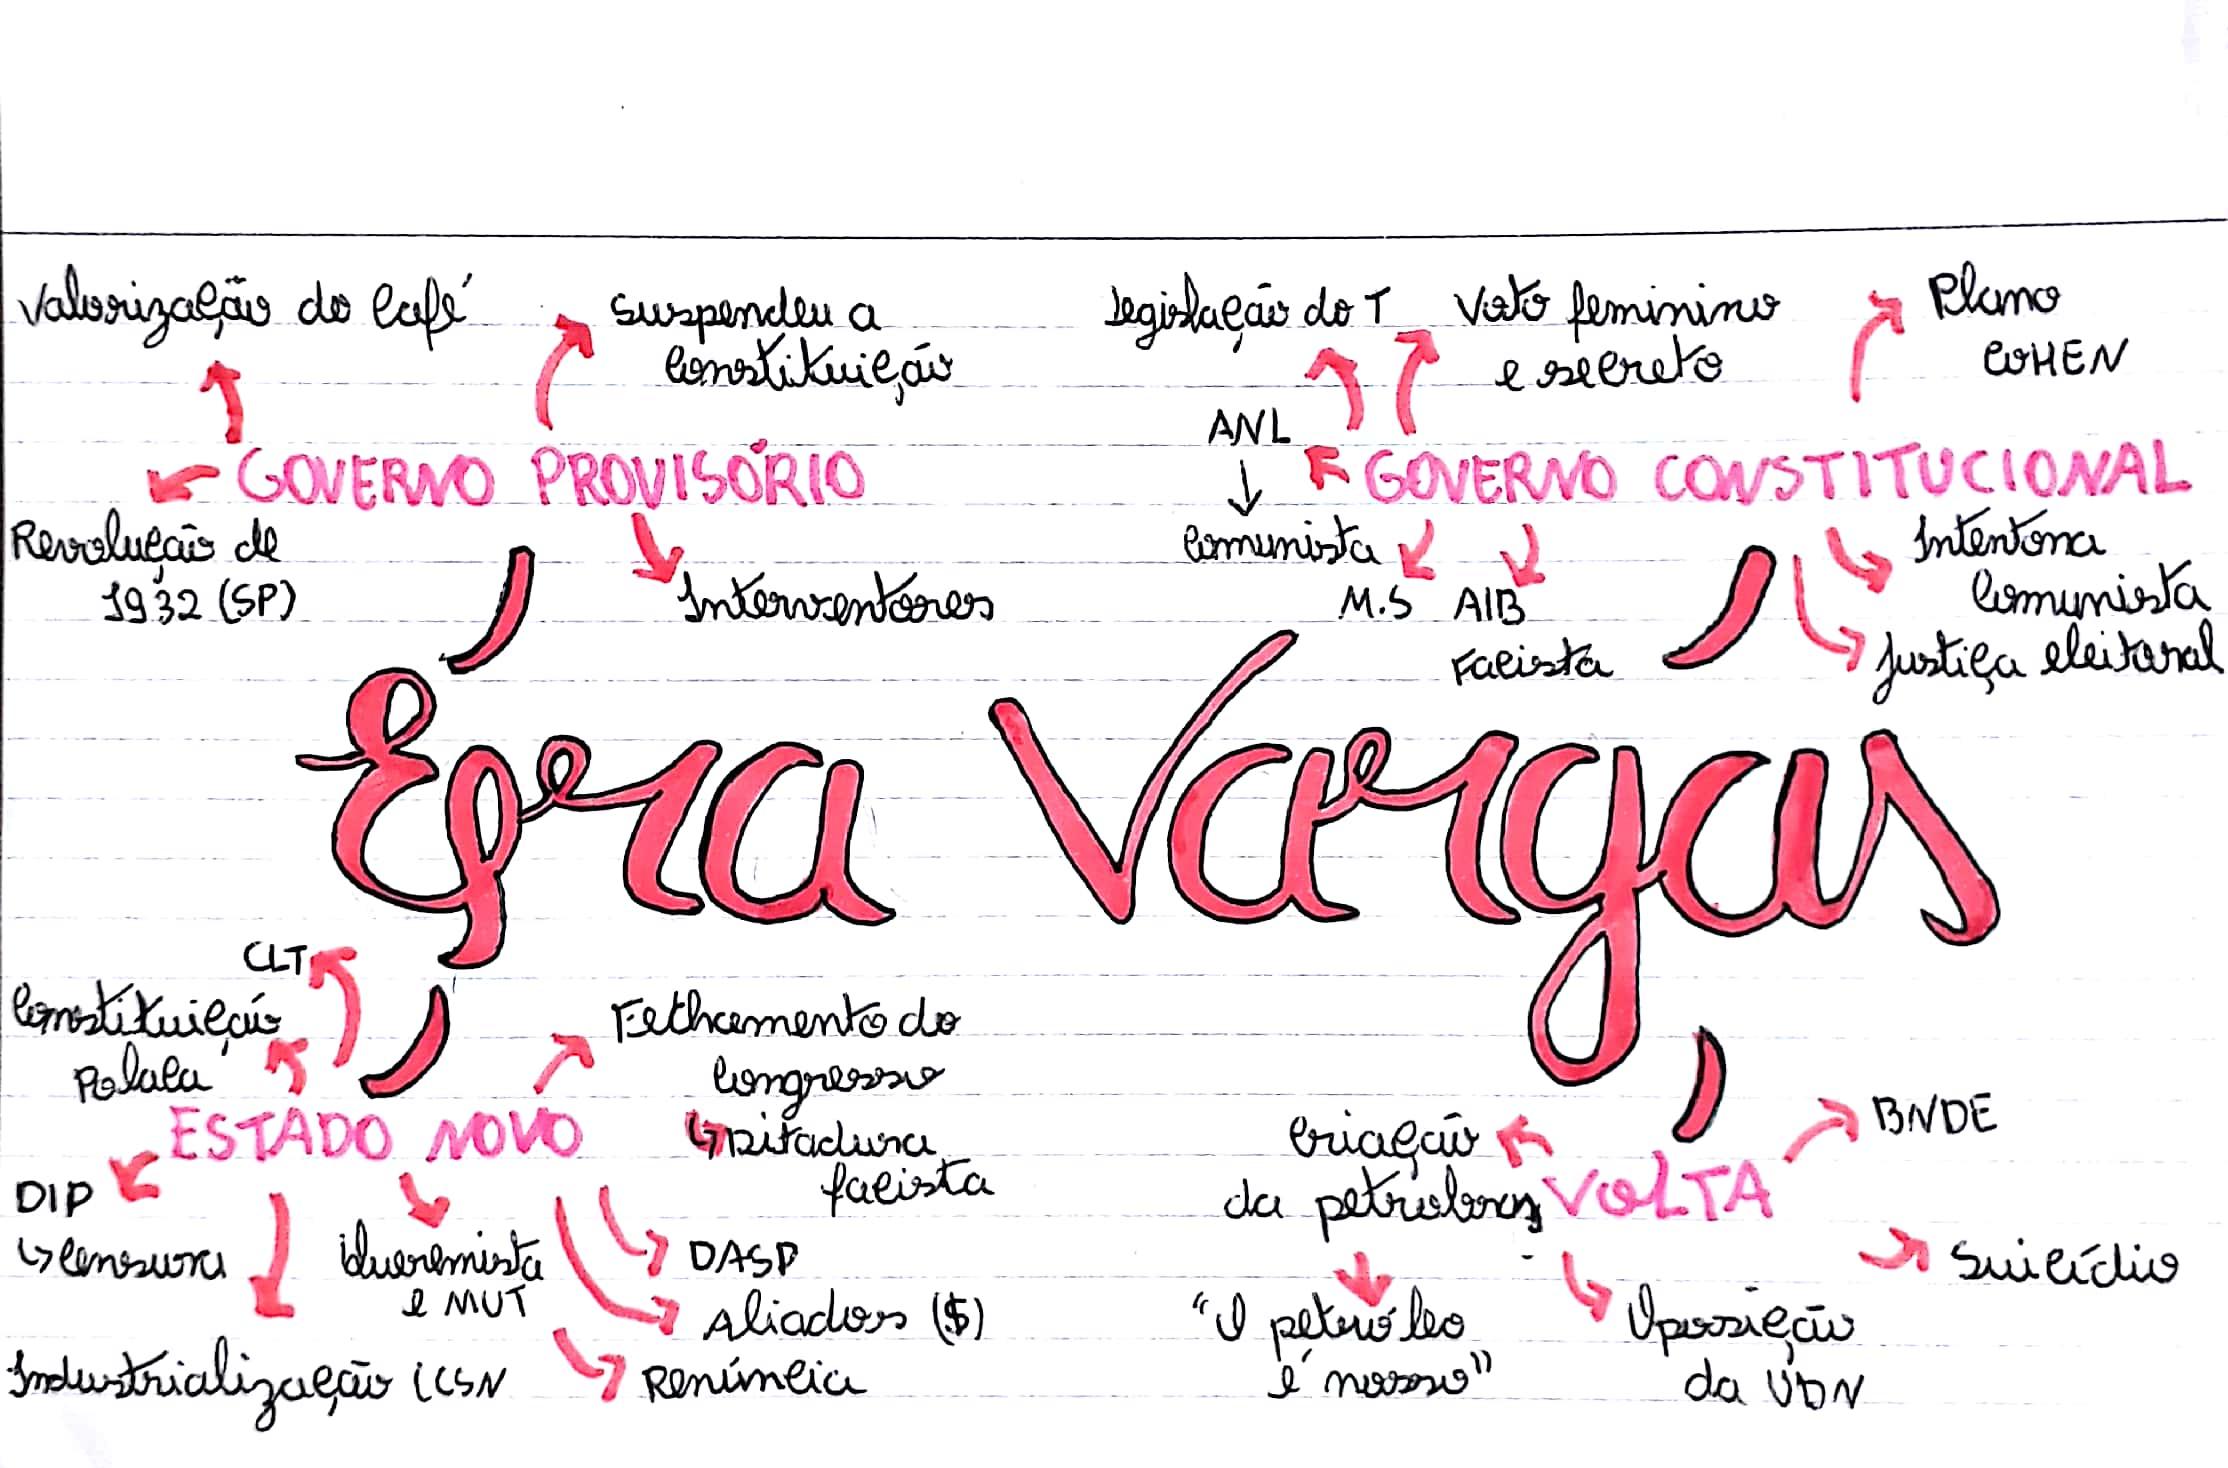 Valorização do Café
Suspendeu a
Constituição
GOVERNO PROVISÓRIO
Revolução de
1932 (SP)
Interventores
Legislação do T
Voto feminino
e secreto
Plano
COHEN
ANL
GOVERNO CONSTITUCIONAL
Comunista
M.S
AIB
Facista
Intentona
Comunista
Justiça eleitoral
Era Vargas
CLT
Constituição
Polaca
Fethcamento do
Congresso
Ditadura
facista
ESTADO NOVO
DIP
Censura
e MUT
DASP
Aliados ($)
Industrialização (CSN
Renúncia
Criação
da petrobras
VOLTA
BNDE
Suicídio
"O petróleo
é nosso"
Oposição
da UDN